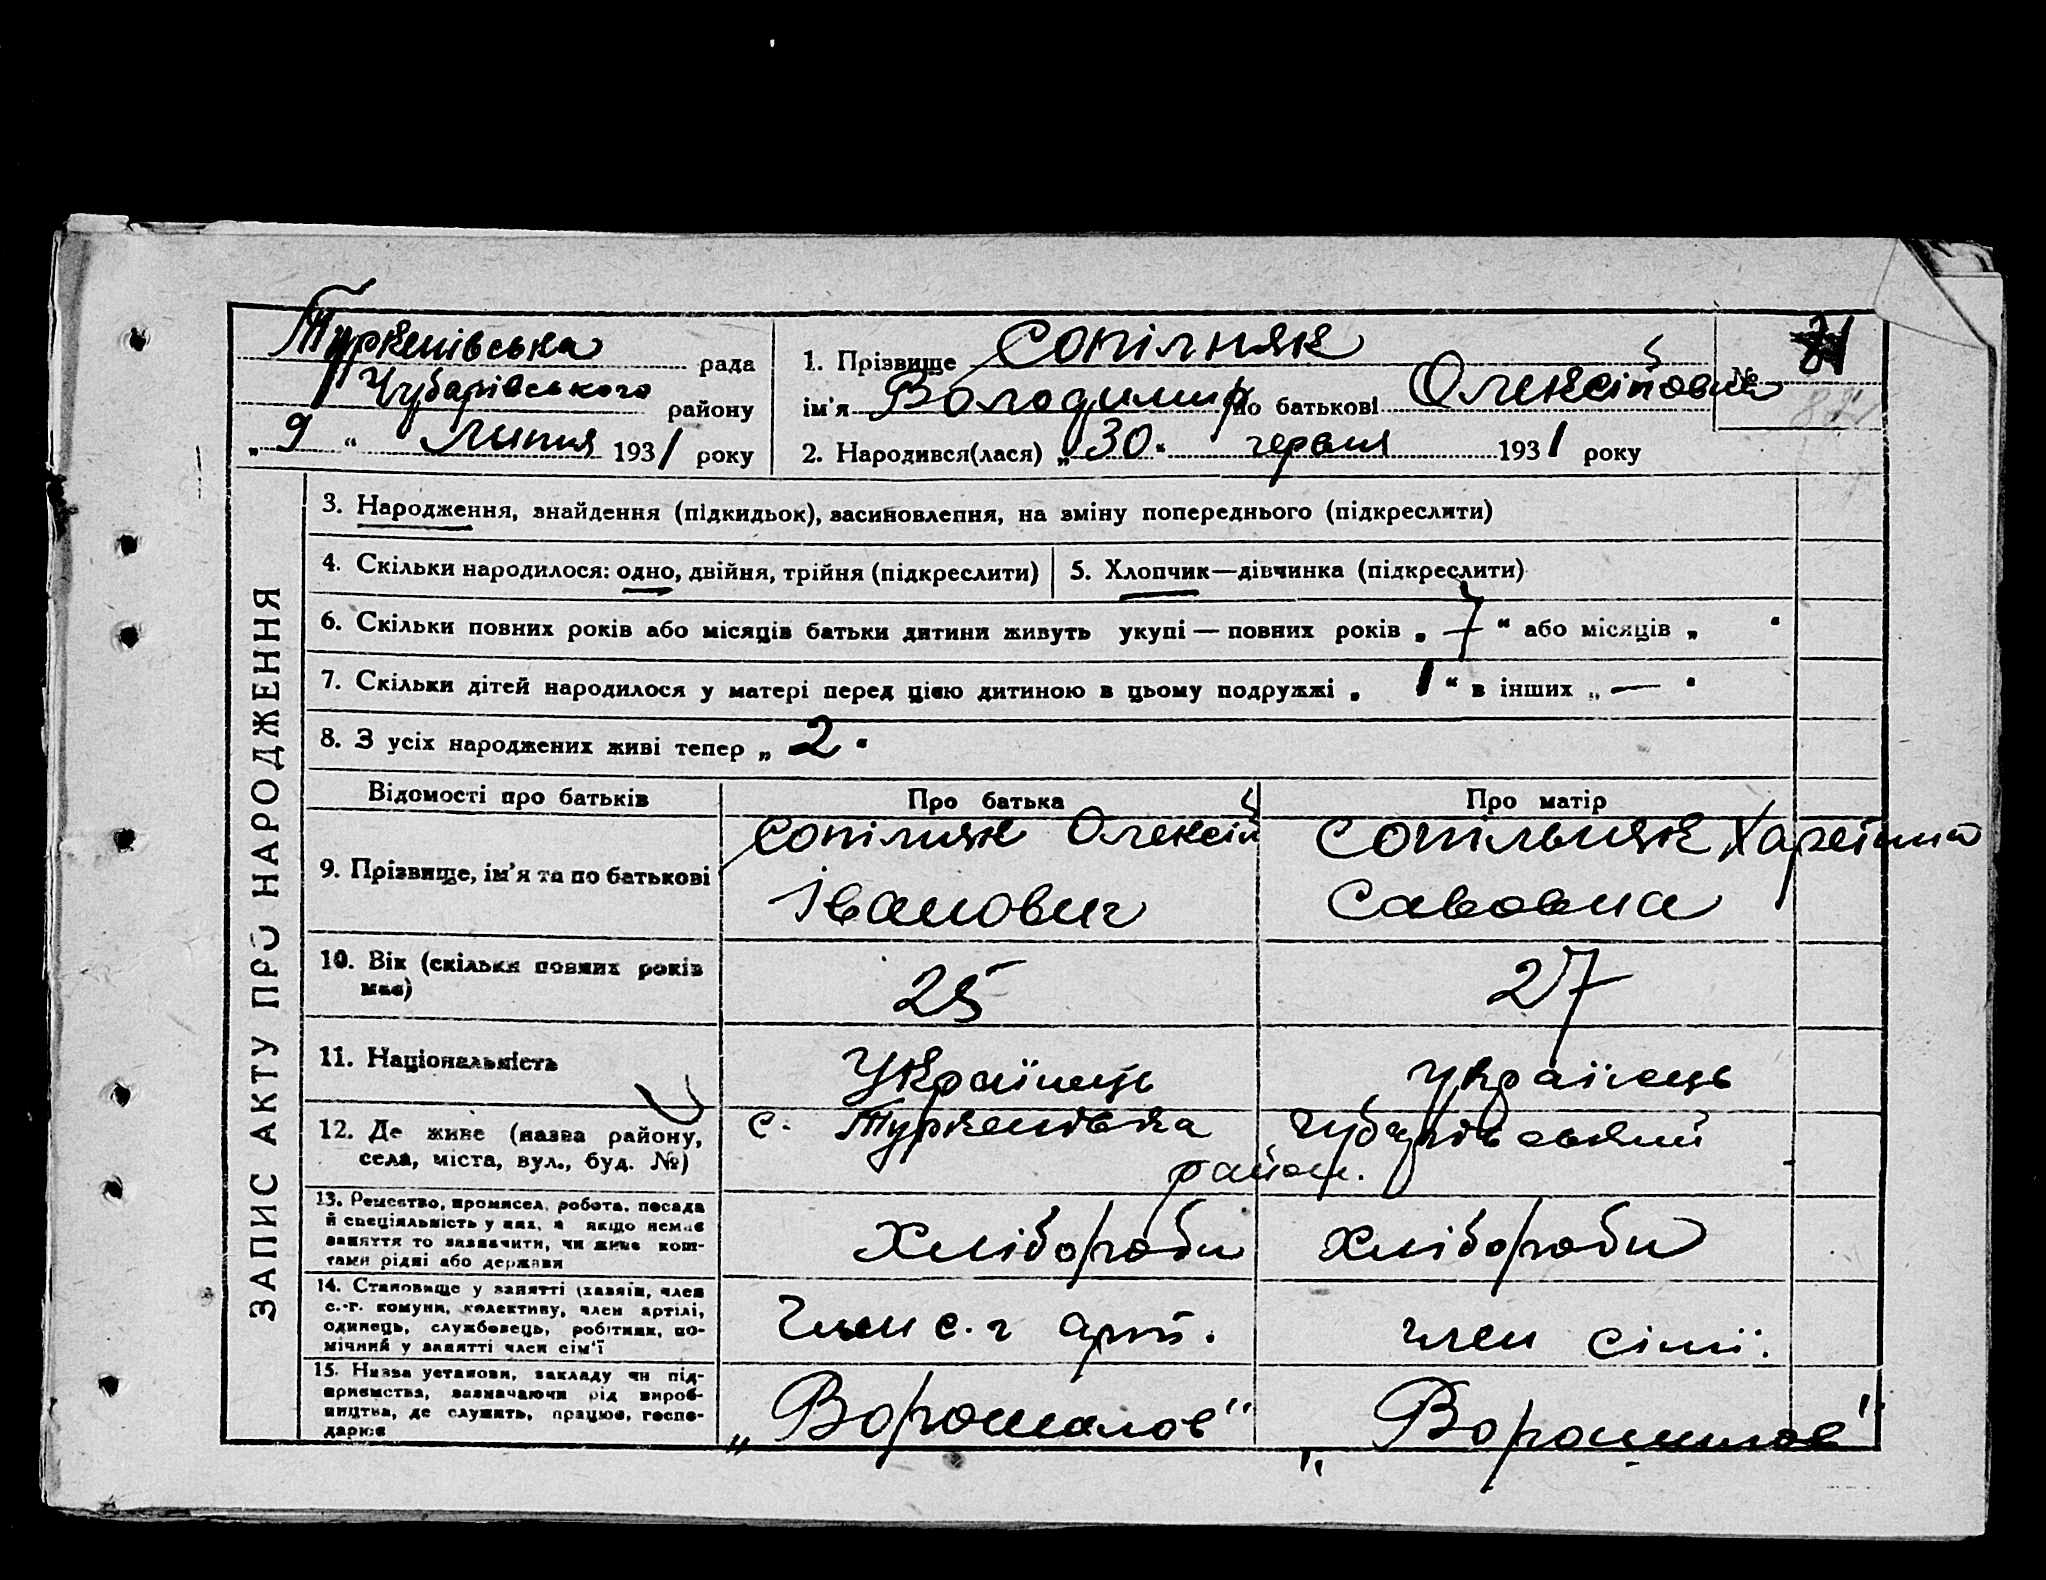 Туркенівська рада
Чубарівського району
„ 9 “ Липня 1931 року
1. Прізвище Сопілняк
ім'я Володимир по батькові Олексійович
2. Народився(лася) „ 30 “ червня 1931 року
№ 81
ЗАПИС АКТУ ПРО НАРОДЖЕННЯ
3. Народження, знайдення (підкидьок), засиновлення, на зміну попереднього (підкреслити)
4. Скільки народилося: одно, двійня, трійня (підкреслити)
5. Хлопчик—дівчинка (підкреслити)
6. Скільки повних років або місяців батьки дитини живуть укупі — повних років „ 7 “ або місяців „ “
7. Скільки дітей народилося у матері перед цією дитиною в цьому подружжі „ 1 “ в інших „ — “
8. З усіх народжених живі тепер „ 2 “
Відомості про батьків
Про батька
Про матір
9. Прізвище, ім'я та по батькові
Сопілняк Олексій
Іванович
Сопільняк
Савовна
10. Вік (скільки повних років
має)
25
27
11. Національність
Українець
Українець
12. Де живе (назва району,
села, міста, вул., буд. №)
с. Туркенівка Чубарівський
район.
13. Ремество, промисел, робота, посада
й спеціяльність у них, а якщо немає
заняття то зазначити, чи живе кош-
тами рідні або держави
Хлібороби
Хлібороби
14. Становище у занятті (хазяїн, член
с.-г. комуни, колективу, член артілі,
одинець, службовець, робітник, по-
мічний у занятті член сім'ї
Член с.г арт.
член сімї.
15. Назва установи, закладу чи під-
приємства, зазначаючи рід вироб-
ництва, де служить, працює, госпо-
дарює
„Ворошилов“
„Ворошилов“